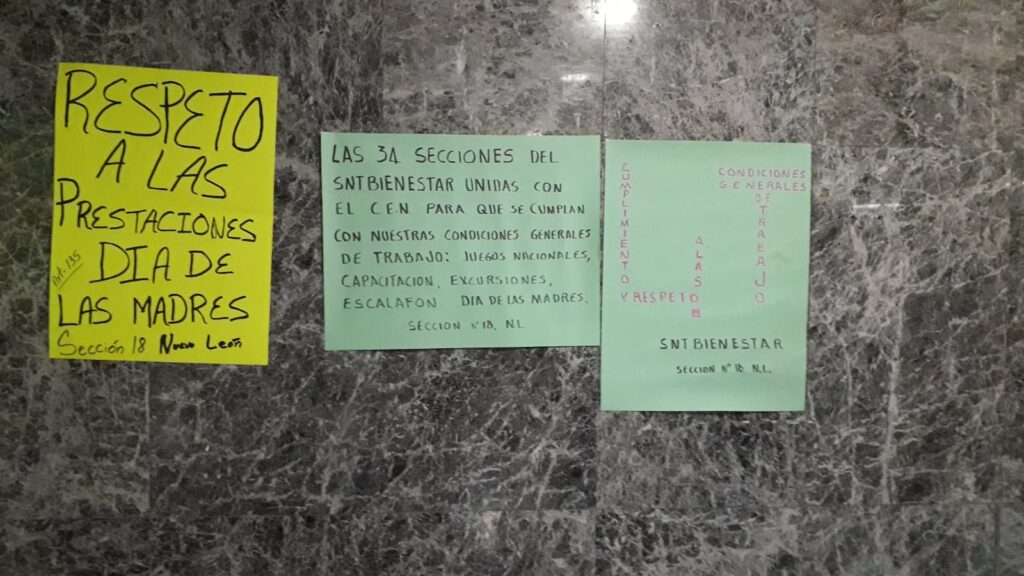 RESPETO
A LAS
PRESTACIONES
Art. 135
DIA DE
LAS MADRES
Sección 18 Nuevo León
LAS 31 SECCIONES DEL
SNTBIENESTAR UNIDAS CON
EL C.E.N. PARA QUE SE CUMPLAN
CON NUESTRAS CONDICIONES GENERALES
DE TRABAJO: JUEGOS NACIONALES,
CAPACITACION, EXCURSIONES,
ESCALAFON. DIA DE LAS MADRES.
SECCION Nº 18, N.L.
CUMPLIMIENTO
Y RESPETO
A LAS
CONDICIONES
GENERALES
DE TRABAJO
SNTBIENESTAR
SECCION Nº 18, N.L.